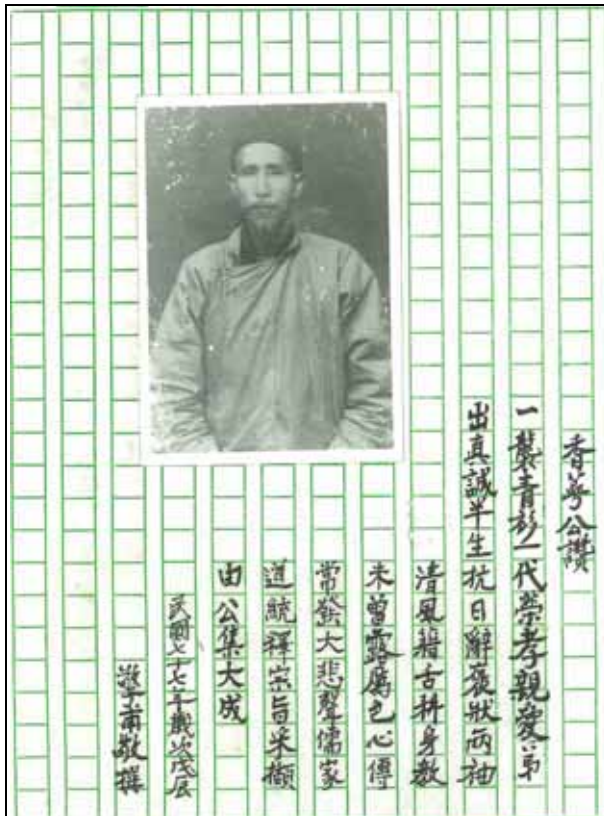 香蕚公讚
一襲青衫一代榮孝親愛弟
出真誠半生抗日辭褒狀兩袖
清風藉舌耕身教
未曾露厲色心傳
常發大悲聲儒家
道統釋宗旨采擷
由公集大成
民國七十七年歲次戊辰
肇甫敬撰